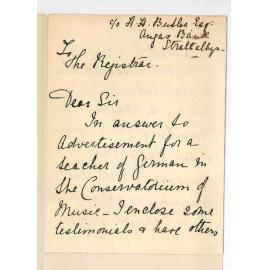 c/o A A Butler Esq:
Angas Bank
Strathalbyn.
To
The Registrar.
Dear Sir
In answer to
Advertisement for a
teacher of German in
the Conservatorium of
Music – I enclose some
testimonials & have others